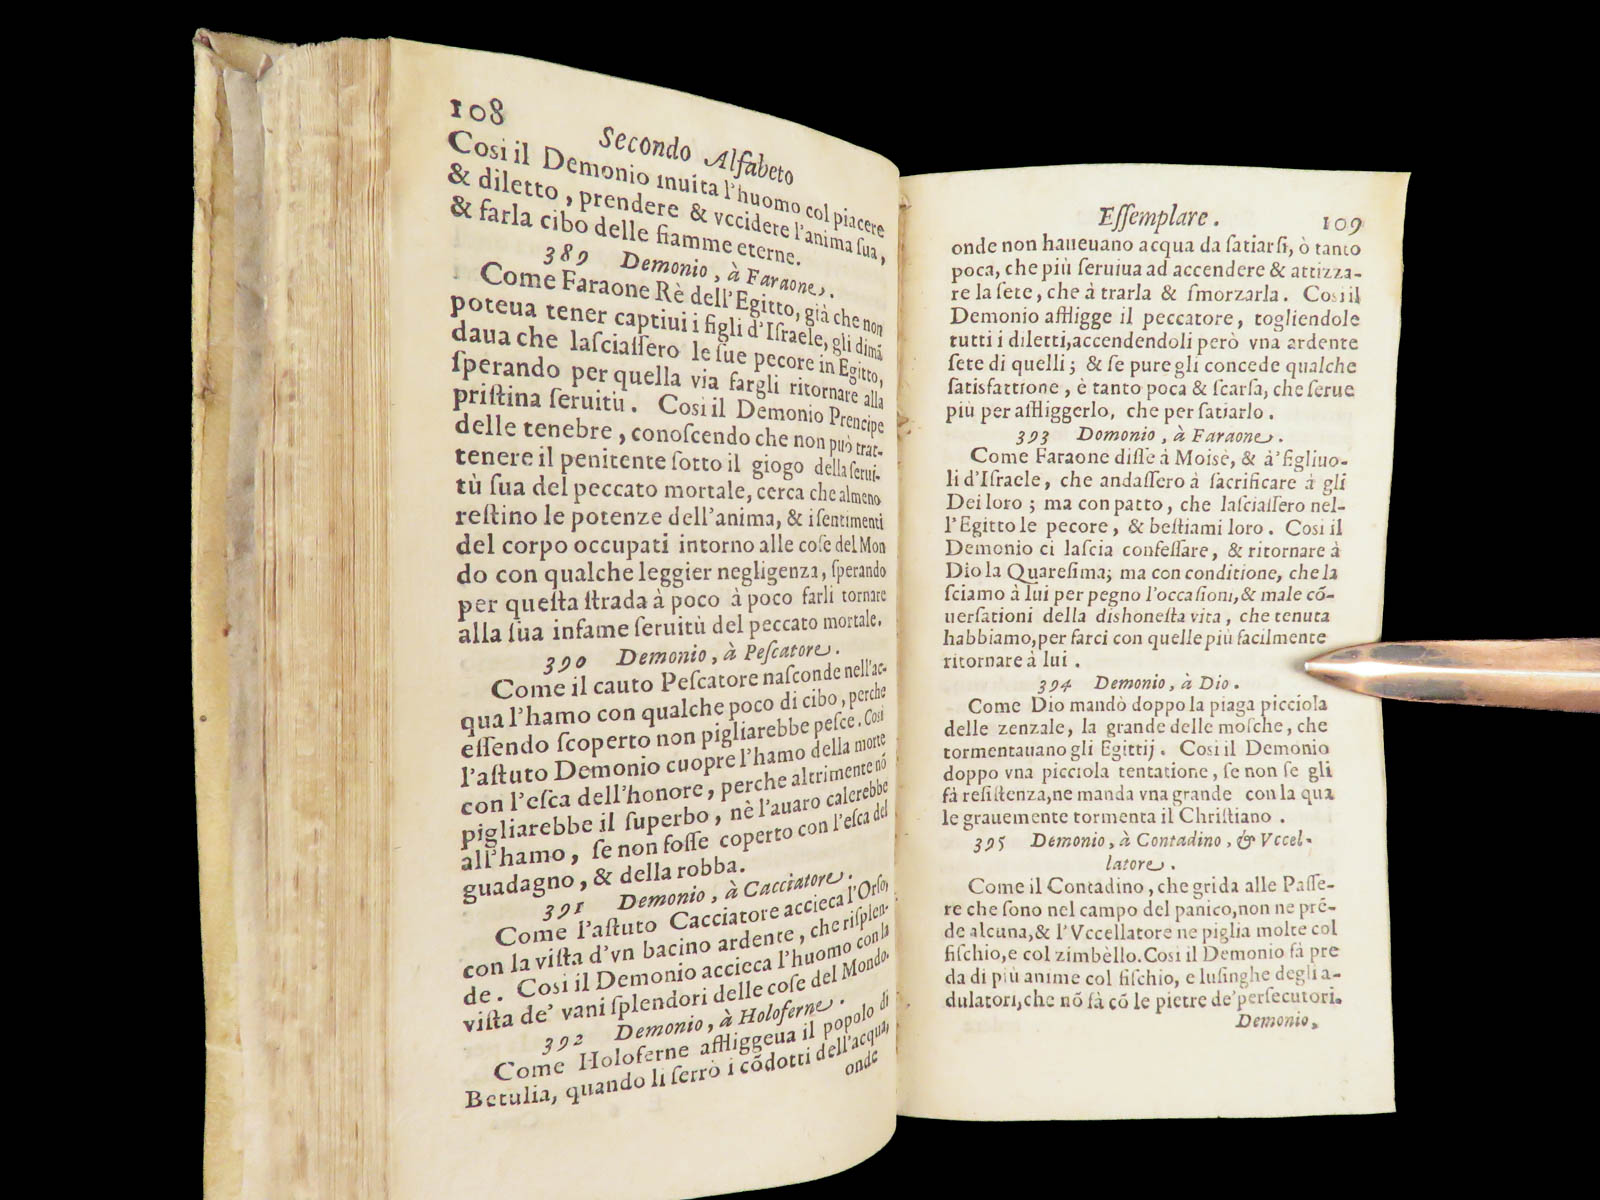 108
Secondo Alfabeto
Cosi il Demonio inuita l'huomo col piacere
& diletto, prendere & vccidere l'anima ſua,
& farla cibo delle fiamme eterne.
389 Demonio, à Faraone.
Come Faraone Rè dell'Egitto, già che non
poteua tener captiui i figli d'Iſraele, gli dimā
daua che laſciaſſero le ſue pecore in Egitto,
ſperando per quella via fargli ritornare alla
priſtina ſeruitù. Cosi il Demonio Prencipe
delle tenebre, conoſcendo che non può trat-
tenere il penitente ſotto il giogo della ſerui-
tù ſua del peccato mortale, cerca che almeno
reſtino le potenze dell'anima, & i ſentimenti
del corpo occupati intorno alle coſe del Mon
do con qualche leggier negligenza, ſperando
per queſta ſtrada à poco à poco farli tornare
alla ſua infame ſeruitù del peccato mortale.
390 Demonio, à Peſcatore.
Come il cauto Peſcatore naſconde nell'ac-
qua l'hamo con qualche poco di cibo, perche
eſſendo ſcoperto non pigliarebbe peſce. Cosi
l'aſtuto Demonio cuopre l'hamo della morte
con l'eſca dell'honore, perche altrimente nō
pigliarebbe il ſuperbo, nè l'auaro calerebbe
all'hamo, ſe non foſſe coperto con l'eſca del
guadagno, & della robba.
391 Demonio, à Cacciatore.
Come l'aſtuto Cacciatore accieca l'Orſo,
con la viſta d'vn bacino ardente, che riſplen-
de. Cosi il Demonio accieca l'huomo con la
viſta de' vani ſplendori delle coſe del Mondo.
392 Demonio, à Holoferne.
Come Holoferne affliggeua il popolo di
Betulia, quando li ſerrò i cōdotti dell'acqua,
onde
Eſſemplare. 109
onde non haueuano acqua da ſatiarſi, ò tanto
poca, che più ſeruiua ad accendere & attizza-
re la ſete, che à trarla & ſmorzarla. Cosi il
Demonio affligge il peccatore, togliendole
tutti i diletti, accendendoli però vna ardente
ſete di quelli; & ſe pure gli concede qualche
ſatisfattione, è tanto poca & ſcarſa, che ſerue
più per affliggerlo, che per ſatiarlo.
393 Domonio, à Faraone.
Come Faraone diſſe à Moisè, & à' figliuo-
li d'Iſraele, che andaſſero à ſacrificare à gli
Dei loro; ma con patto, che laſciaſſero nel-
l'Egitto le pecore, & beſtiami loro. Cosi il
Demonio ci laſcia confeſſare, & ritornare à
Dio la Quareſima; ma con conditione, che la
ſciamo à lui per pegno l'occaſioni, & male cō-
uerſationi della dishoneſta vita, che tenuta
habbiamo, per farci con quelle più facilmente
ritornare à lui.
394 Demonio, à Dio.
Come Dio mandò doppo la piaga picciola
delle zenzale, la grande delle moſche, che
tormentauano gli Egittij. Cosi il Demonio
doppo vna picciola tentatione, ſe non ſe gli
fà reſiſtenza, ne manda vna grande con la qua
le grauemente tormenta il Chriſtiano.
395 Demonio, à Contadino, & Vccel-
latore.
Come il Contadino, che grida alle Paſſe-
re che ſono nel campo del panico, non ne prē-
de alcuna, & l'Vccellatore ne piglia molte col
fiſchio, e col zimbèllo. Cosi il Demonio fà pre
da di più anime col fiſchio, e luſinghe degli a-
dulatori, che nō fà cō le pietre de' perſecutori.
Demonio,